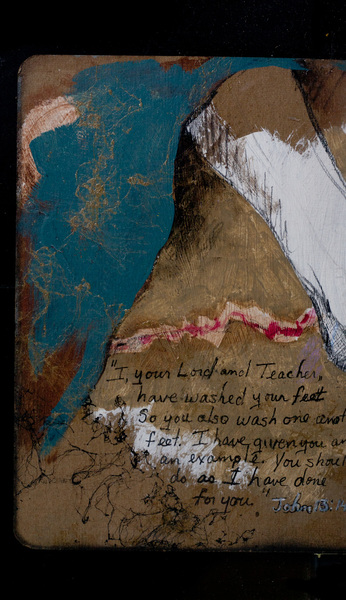 "I, your Lord and Teacher,
have washed your feet
So you also wash one
feet. I have given you an
an example. You
do as I have done
for you."
John